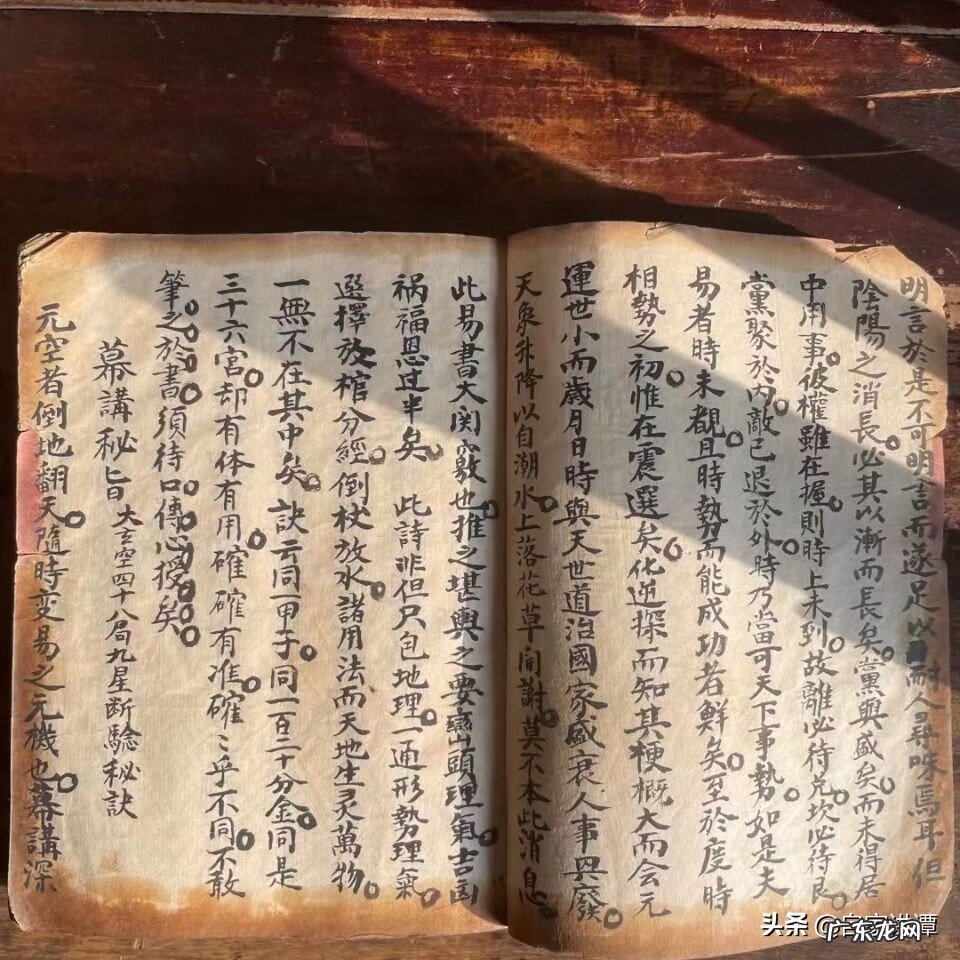 明言於是不可明言而遂足以耐人尋味焉耳但
陰陽之消長必其以漸而長矣黨與盛矣而未得居
中用事被權雖在握則時上未到故離必待兌坎必待艮
黨聚於內敵已退於外時乃當可天下事勢如是夫
易者時未覩且時勢而能成功者鮮矣至於度時
相勢之初惟在震選矣化逆探而知其梗概大而会元
運世小而歲月日時與天世道治國家盛衰人事興廢
天象升降以自潮水上落花草開謝莫不本此消息
此易書大関竅也推之堪輿之要巒頭理氣吉凶
祸福思过半矣 此詩非但尺包地理一通形勢理氣
選擇放棺分經倒杖放水諸用法而天地生灵萬物
一無不在其中矣 訣云同一甲子同一百二十分金同是
三十六宮却有体有用確確有准確〻乎不同不敢
筆之於書須待口傳心授矣
幕講秘旨 大玄空四十八局九星断驗秘訣
元空者倒地翻天隨時变易之元機也幕講深
头条 @名家讲谭
广东龙网